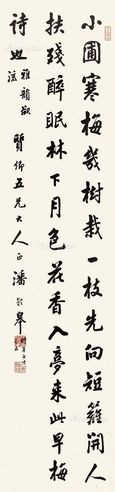 小圃寒梅幾樹栽一枝先向短籬開人
扶殘醉眠林下月色花香入夢來此早梅
詩也 五兄大人正 潘齡皋